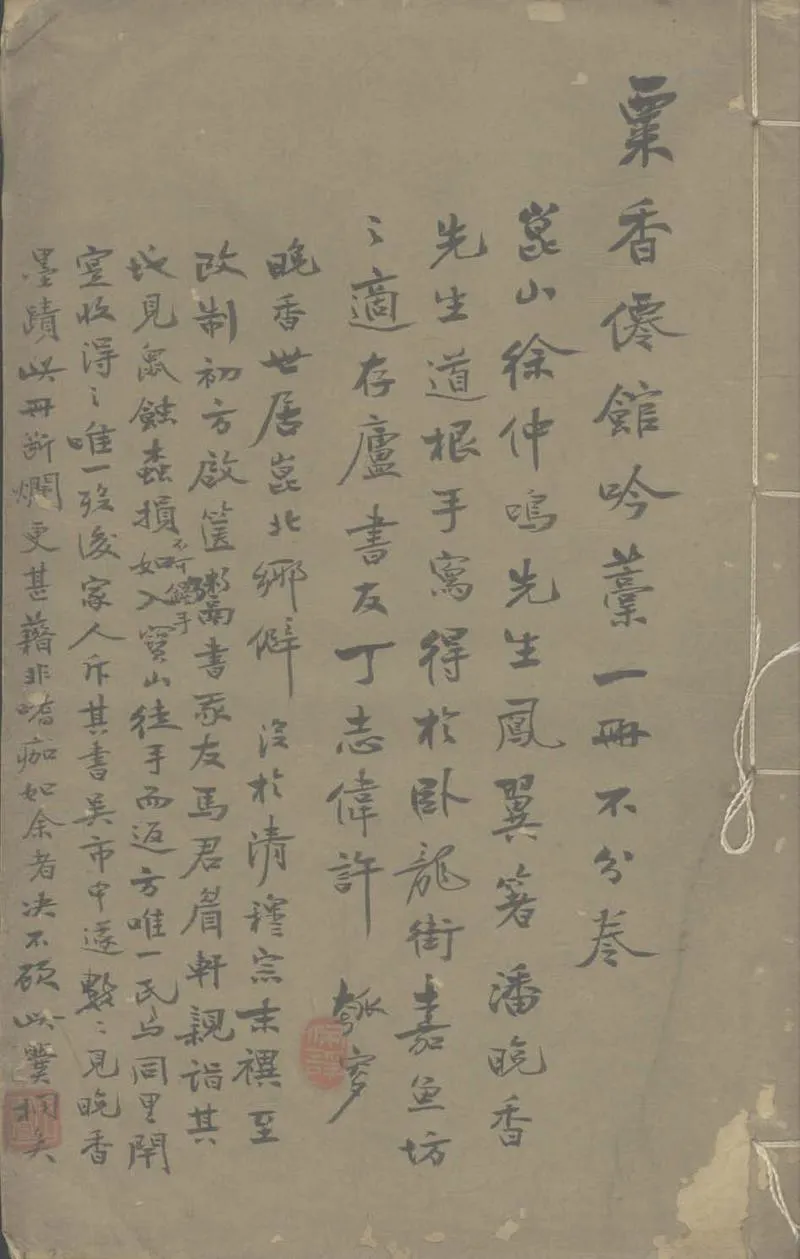 粟香僊館吟藁一冊不分卷
崑山徐仲鳴先生鳳翼箸潘晚香
先生道根手寫得於臥龍街嘉魚坊
〻適存廬書友丁志偉許
晚香世居崑北鄉僻 沒於清穆宗末禩至
改制初方啟篋鬻書余友馬君眉軒親詣其
地見魚蝕蟲損不可觸手如入寶山徒手而返方唯一民與同里閈
宣收得〻唯一歿後家人斥其書吳市中遂數〻見晚香
墨蹟此冊斷爛更甚藉非嗜痂如余者決不顧此